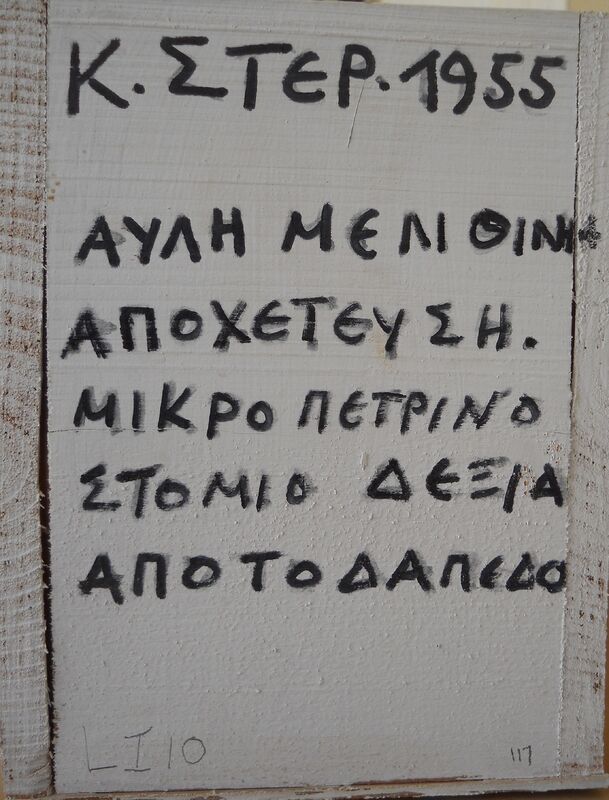 Κ. ΣΤΕΡ. 1955
ΑΥΛΗ ΜΕ ΛΙΘΙΝΗ
ΑΠΟΧΕΤΕΥΣΗ.
ΜΙΚΡΟ ΠΕΤΡΙΝΟ
ΣΤΟΜΙΟ ΔΕΞΙΑ
ΑΠΟ ΤΟ ΔΑΠΕΔΟ
LI 10
117